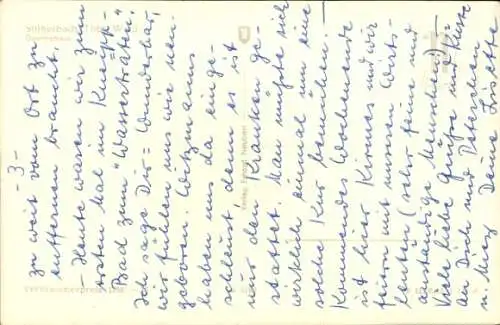 - 3 -
zu weit vom Ort zu
entfernen braucht.
- Heute waren wir zum
ersten Mal im Kneipp-
Bad zum "Wassertreten".
Ich sage Dir = wunderbar,
wir fühlen uns wie neu-
geboren. Witzmanns
haben uns da einge-
schleust, denn es ist
nur den Kranken ge-
stattet. Man müßte sich
wirklich einmal um eine
solche Kur bemühen! -
Kommendes Wochenende
ist hier Kirmes und wir
feiern mit unseren Wirts-
leuten (sehr feine und
anständige Menschen).
Viele liebe Grüße und Küsse
an Dich und Peterchen
u. Meg Deine Liselotte
Verlag